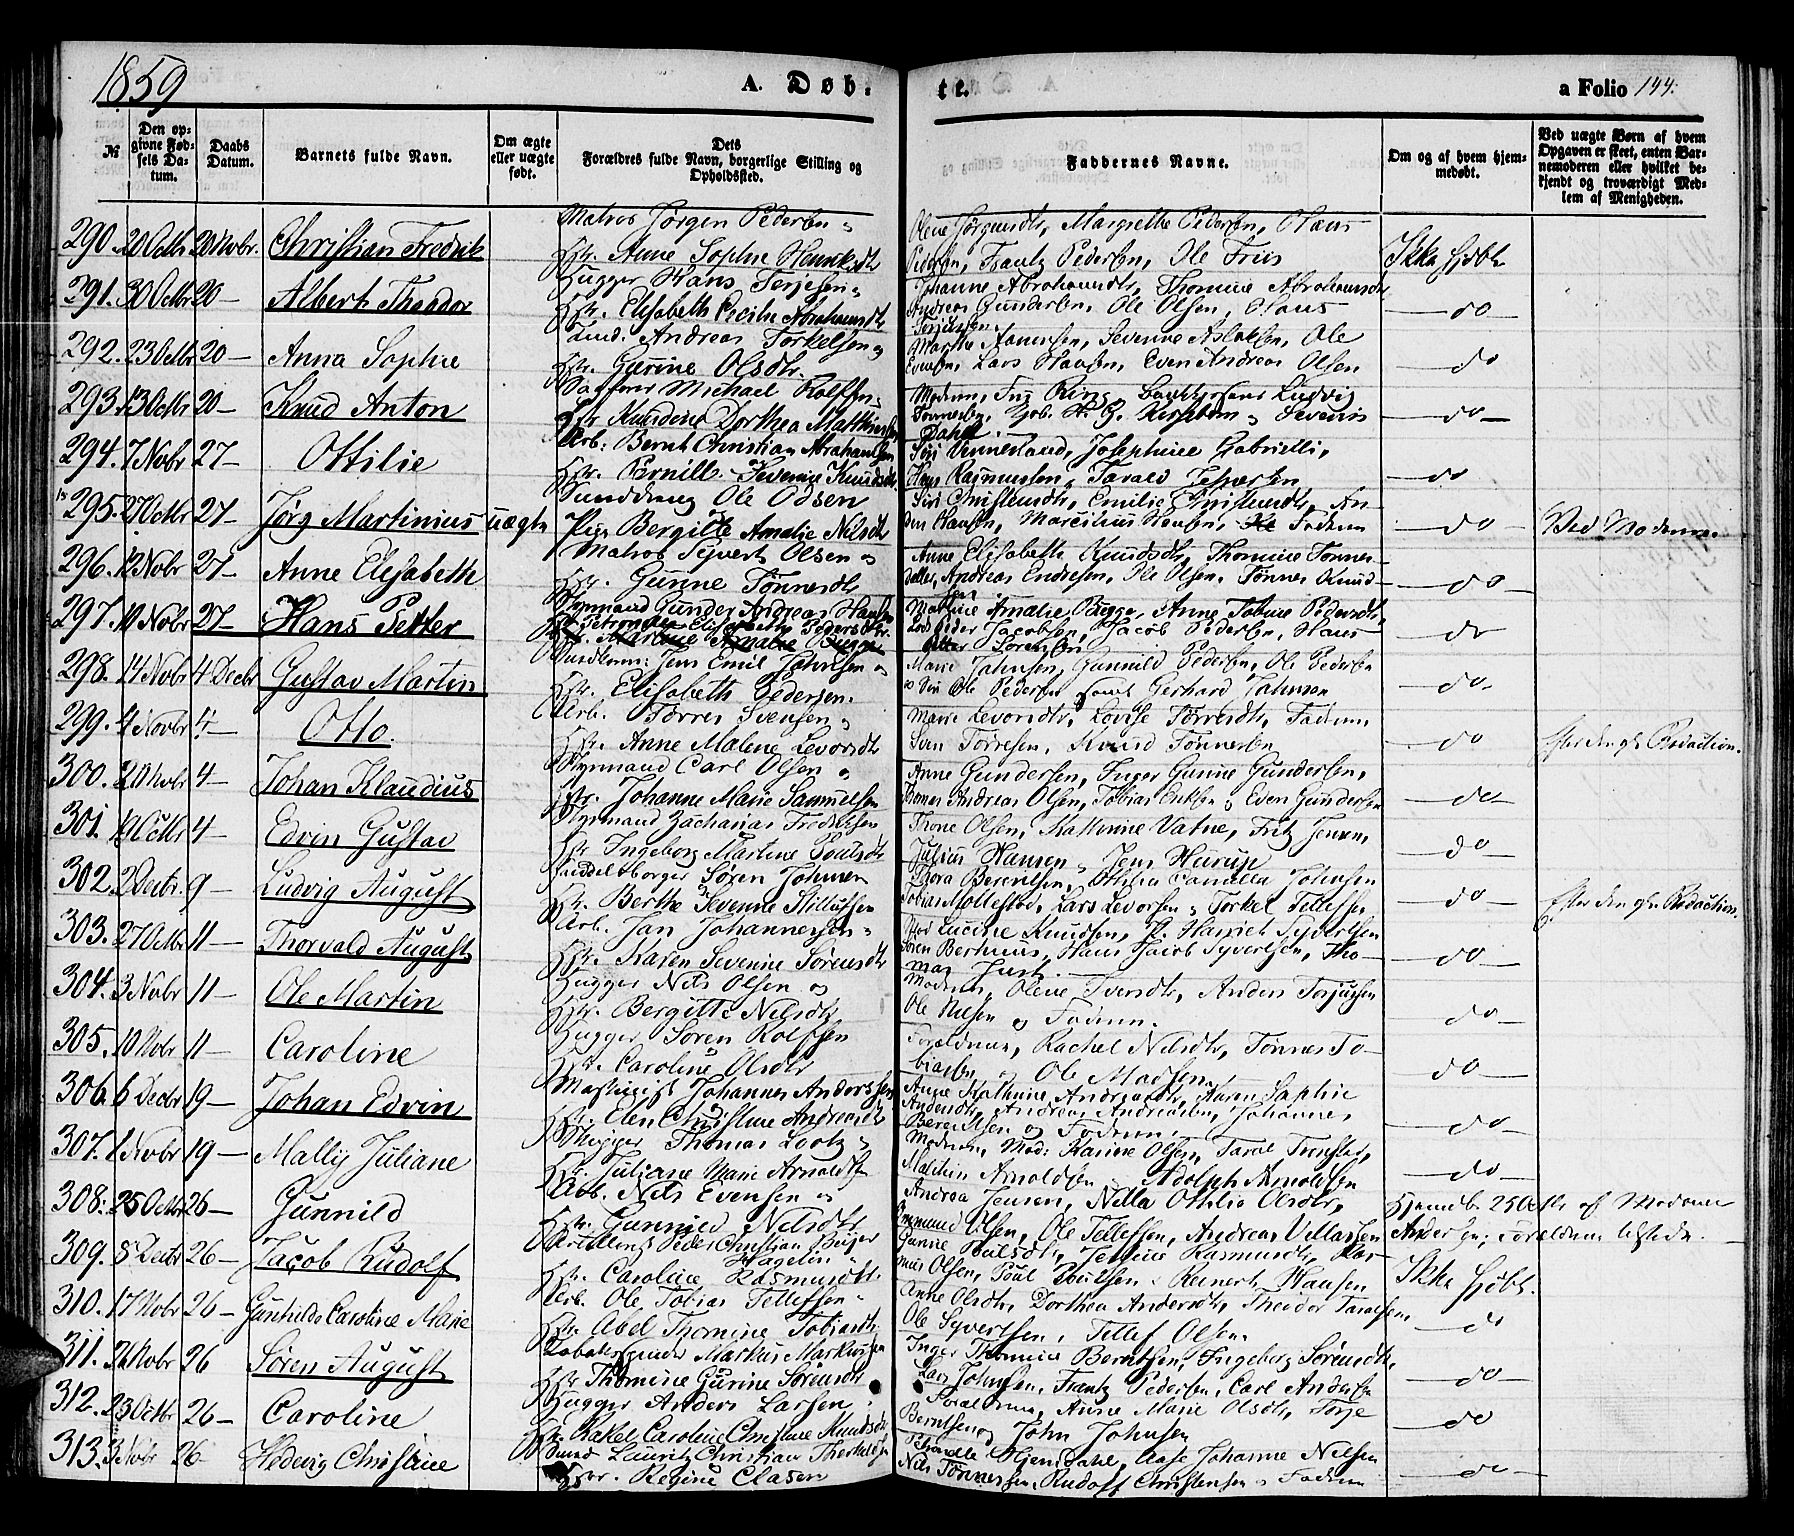 1859
A. Døb-
te.
a Folio 144.
№
Den op-
givne Fød-
sels Da-
tum.
Daabs
Datum.
Barnets fulde Navn.
Om ægte
eller uægte
født.
Dets
Forældres fulde Navn, borgerlige Stilling og
Opholdssted.
Faddernes Navne.
Om og af hvem hjem-
medøbt.
Ved uægte Børn af hvem
Opgaven er skeet, enten Bar-
nemoderen eller hvilket be-
kjendt og troværdigt Med-
lem af Menigheden.
290. 20 Octbr 20 Novbr. Christian Fredrik
Matros Jørgen Pedersen
Anne Sophie
Margrethe Pedersen, Claus
Pedersen, Frantz Pedersen, Ole Friis
291. 30 Octbr 20 — Albert Theodor
Hugger Hans Terjesen
Elisabeth Cecilie Abrahamsdtr
Johanne Abrahamsdtr, Thomine Abrahamsdtr
Andreas Gundersen, Ole Olsen, Claus
Terjesen
— do —
292. 23 Octbr 20 — Anna Sophie
Andreas Torkelsen
Gurine Olsdtr.
Marthe Aanensen, Severine Aslaksen, Ole
Evensen, Lars Hansen, Even Andreas Olsen
— do
293. 13 Octbr 20 — Knud Anton
Michael Rolfsen
Knudene Dorthea Mathiesen
Ludvig
Tønnesen
Dahl
— do —
294. 7 Novbr 27 — Ottilie
Arb. Bernt Christian Abrahamsen
Pernille Severine Knudsdtr
Siri Vennesland, Josephine Gabrielli,
Hans Rasmussen, Tarald Jespersen
— do
295. 27 Octbr 27 — Jørg Martinius uægte
Ole Odsen
Pige Bergitte Amalie Nilsdtr
Siri Christensdtr, Emilie Christensdtr, An-
Hansen, Marcelius Hansen, Faderen
— do —
Ved Moderen.
296. 12 Novbr 27 — Anne Elisabeth
Matros Syvert Olsen
Gunne Tønnesdtr
Anne Elisabeth Knudsdtr, Thomine Tønnes-
datter, Andreas Endresen, Ole Olsen, Tønnes Knud-
sen
— do —
297. 10 Novbr 27 — Hans Petter
Styrmand Gunder Andreas Hansen
Petronelle Elisabeth Pedersdtr.
Martine Amalie Bugge
Martine Amalie Bugge, Anne Tobine Pedersdtr
Lods Peder Jacobsen, Jacob Pedersen, Hans
Petter Sørensen
— do
298. 14 Novbr 4 Decbr Gustav Martin
Jens Emil Johnsen
Elisabeth Pedersen.
Marie Johnsen, Gunnild Pedersen, Ole Pedersen
Ole Pedersen samt Gerhard Johnson
— do —
299. 4 Novbr 4 — Otto.
Arb. Torres Svensen
Anne Malene Levorsdtr
Marie Levorsdtr, Lovise Tørresdtr, Faderen
Sven Tørresen, Knud Tønnesen
— do
Efter den gl. Redaction.
300. 20 Novbr 4 — Johan Klaudius
Styrmand Carl Olsen
Johanne Marie Samuelsen
Anne Gundersen, Inger Gurine Gundersen,
Thomas Andreas Olsen, Tobias Eriksen, Even Gundersen
— do —
301. 19 Octbr 4 — Edvin Gustav
Styrmand Zacharias Fredriksen
Ingeborg Martine Poulsdtr
Thone Olsen, Kathrine Vatne, Fritz Jensen,
Julius Hansen, Jens Hurup
— do —
302. 2 Decbr. 9 — Ludvig August
Søren Johnsen
Berthe Severine Stillufsen
Thora Berentsen, Othilia Camilla Johnsen
Tobias Mollestad, Lars Levorsen, Torkel Tellefsen
— do —
Efter den gl. Redaction.
303. 27 Octbr 11 — Thorvald August
Arb. Jan Johannesen
Karen Severine Sørensdtr
Lucine Knudsen, Harriet Syvertsen
Søren Bernius, Hans Jacob Syvertsen, Tho-
mas Just.
— do —
304. 3 Novbr 11 — Ole Martin
Hugger Nils Olsen og
Bergitte Nilsdtr,
Moderen, Olene Iversdtr, Anders Torjussen
Ole Nilsen og Faderen.
— do —
305. 10 Novbr 11 — Caroline
Hugger Søren Rolfsen
Caroline Olsdtr
Forældrene, Rachel Nilsdtr, Tønnes To-
biassen, Ole Madsen
— do —
306. 6 Decbr 19 — Johan Edvin
Johannes Anderssen
Elen Christine Andreasdtr
Anne Kathrine Andreasdtr, Karen Sophie
Andersdtr, Andreas Andreassen, Johannes
Berentsen og Faderen
— do —
307. 1 Novbr 19 — Mally Juliane
Thomas Lootz
Juliane Marie Arnoldsen
Moderen, Mad: Karine Olsen,
Arnoldsen, Adolph Arnoldsen
— do —
308. 25 Octbr 26 — Gunnild
Arb. Nils Evensen
Gunnild Nilsdtr
Andrea Jensen, Nilla Othilia Olsdtr,
Ommund Olsen, Ole Tellefsen, Andreas
Hjemmedøbt 25 Octbr af Madame
Andersen; Forældrene tilstede.
309. 5 Decbr 26 — Jacob Rudolf
Peder Christian Beyer
Hagelin
Caroline Rasmusdtr.
Gurine Poulsdtr, Rasmusdtr, Ras-
mus Olsen, Poul Poulsen, Reinert Hansen
Ikke hjdbt.
310. 17 Novbr 26 — Gunhilde Caroline Marie
Arb. Ole Tobias Tellefsen
Abel Thomine Tobiasdtr.
Anne Olsdtr, Dorthea Andersdtr, Theodor Taraldsen,
Ole Syvertsen, Tellef Olsen.
— do
311. 26 Novbr 26 Søren August
Markus Markussen
Thomine Gurine Sørensdtr
Inger Thomine Berntsen, Ingeborg Sørensdtr,
Lars Johnsen, Frantz Pedersen, Carl Andersen
— do —
312. 23 Octbr 26 — Caroline
Hugger Anders Larsen
Rakel Caroline Christine Knudsdtr
Forældrene, Anne Marie Olsdtr, Terje
Berntsen og John Johnsen
— do —
313. 3 Novbr 26 — Hedevig Christine
Lauritz Christian Therkelsen
Regine Clasen
Petronelle Hjemdahl, Aase Johanne Nielsen
Nils Tønnessen, Rudolf Christensen, Faderen
— do —